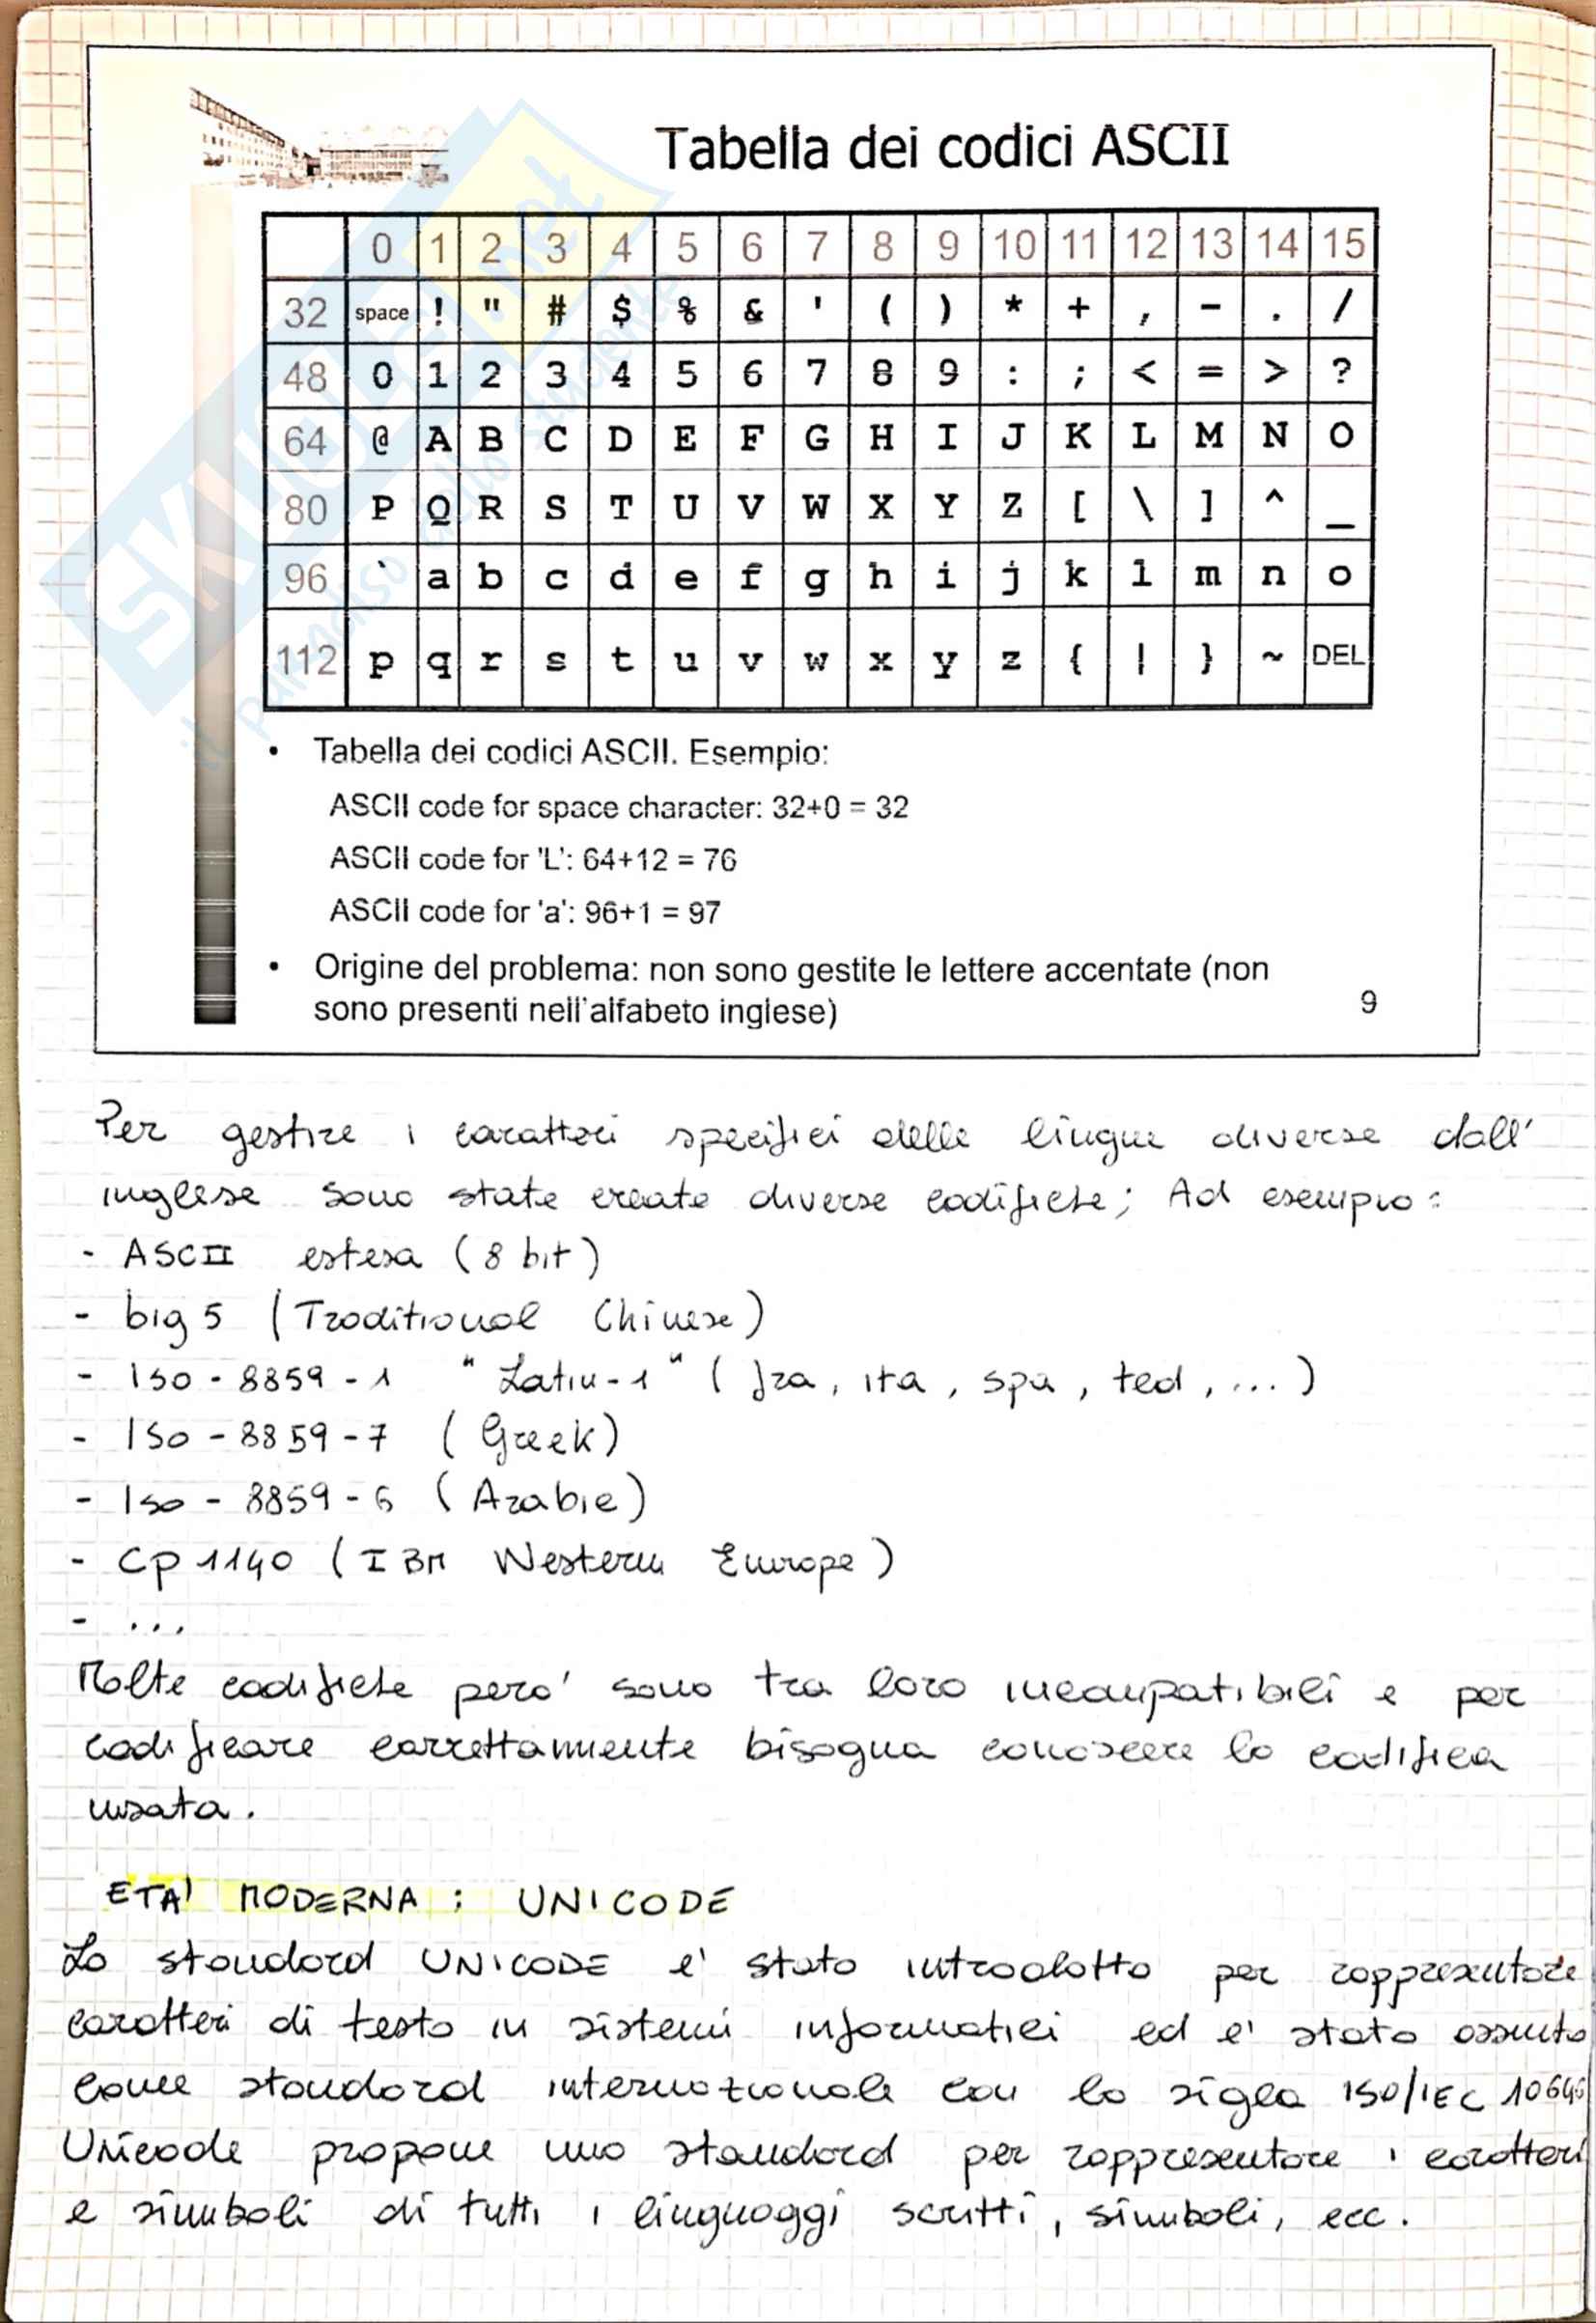 Tabella dei codici ASCII
0 1 2 3 4 5 6 7 8 9 10 11 12 13 14 15
32 space ! " # $ % & ' ( ) * + , - . /
48 0 1 2 3 4 5 6 7 8 9 : ; < = > ?
64 @ A B C D E F G H I J K L M N O
80 P Q R S T U V W X Y Z [ \ ] ^ _
96 ` a b c d e f g h i j k l m n o
112 p q r s t u v w x y z { | } ~ DEL
• Tabella dei codici ASCII. Esempio:
ASCII code for space character: 32+0 = 32
ASCII code for 'L': 64+12 = 76
ASCII code for 'a': 96+1 = 97
• Origine del problema: non sono gestite le lettere accentate (non
sono presenti nell'alfabeto inglese)
9
Per gestire i caratteri specifici delle lingue diverse dall'
inglese sono state create diverse codifiche; Ad esempio:
- ASCII estesa (8 bit)
- big 5 (Traditional Chinese)
- ISO-8859-1 "Latin-1" (fra, ita, spa, ted, ...)
- ISO-8859-7 (Greek)
- ISO-8859-6 (Arabic)
- Cp 1140 (IBM Western Europe)
- ...
Molte codifiche pero' sono tra loro incompatibili e per
codificare correttamente bisogna conoscere la codifica
usata.
ETA' MODERNA: UNICODE
Lo standard UNICODE e' stato introdotto per rappresentare
caratteri di testo in sistemi informatici ed e' stato assunto
come standard internazionale con la sigla ISO/IEC 10646
Unicode propone uno standard per rappresentare i caratteri
e simboli di tutti i linguaggi scritti, simboli, ecc.